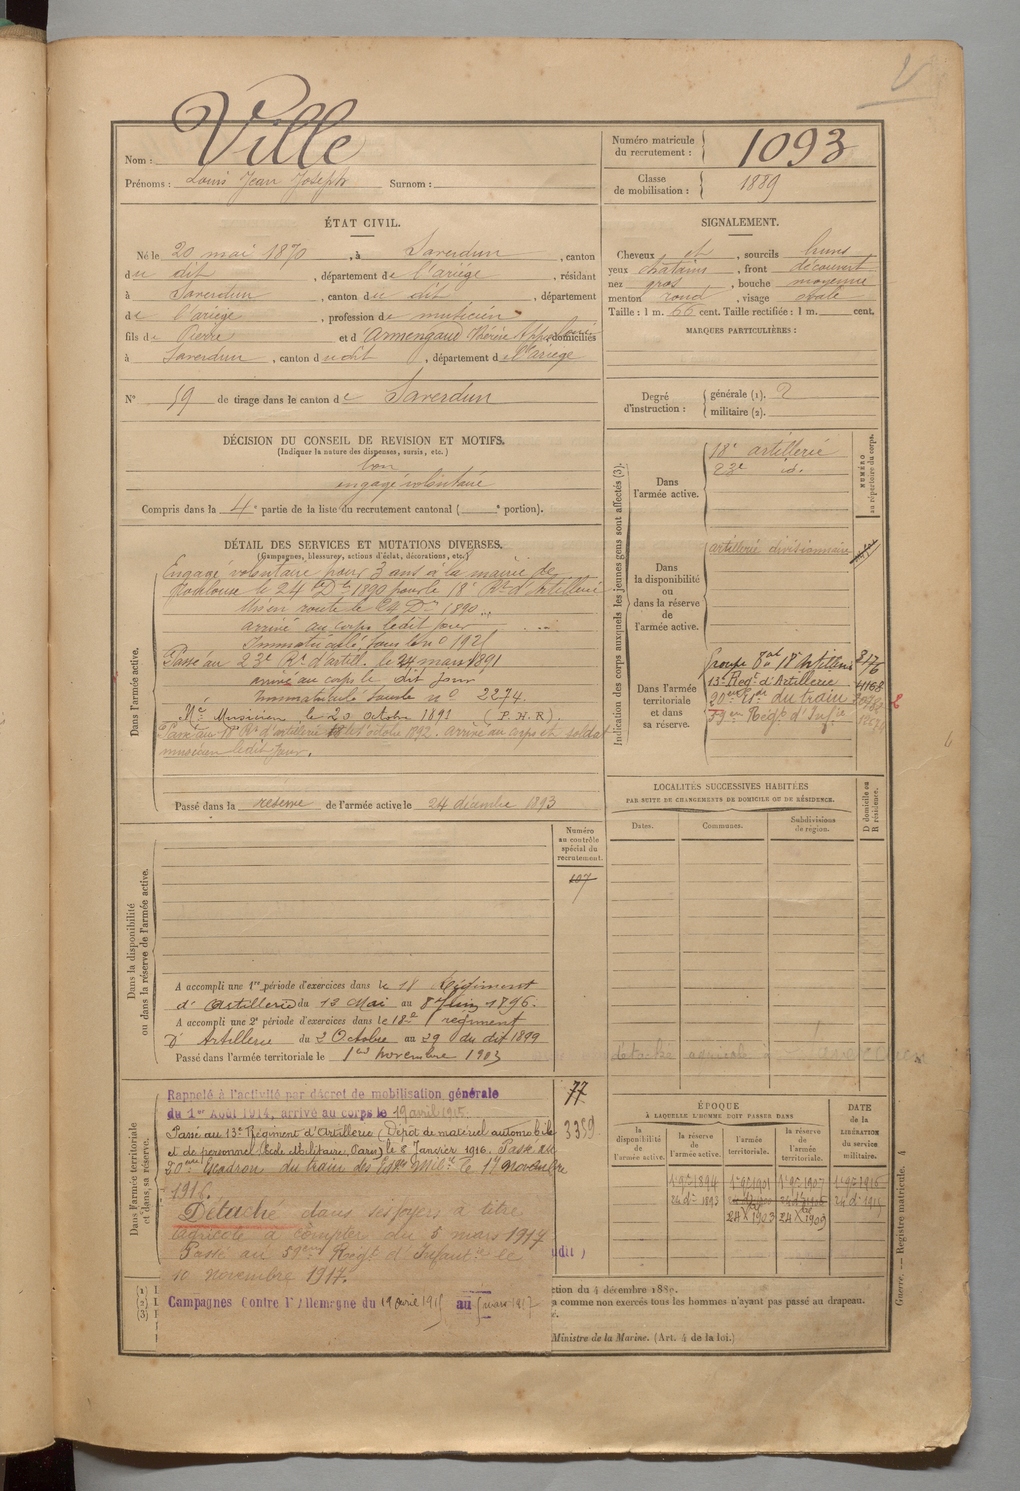 Nom : Ville
Prénoms : Louis Jean Joseph Surnom :
Numéro matricule du recrutement : 1093
Classe de mobilisation : 1889
ÉTAT CIVIL.
Né le 20 mai 1870, à Saverdun, canton
du dit, département de l'ariège, résidant
à Saverdun, canton du dit, département
de l'ariège, profession de musicien
fils de Pierre et d'Armengaud Thérèse domiciliés
à Saverdun, canton dudit, département de l'ariège
N° 59 de tirage dans le canton de Saverdun
SIGNALEMENT.
Cheveux et, sourcils bruns
yeux chatains, front découvert
nez gros, bouche moyenne
menton rond, visage ovale
Taille : 1 m. 66 cent. Taille rectifiée : 1 m. cent.
MARQUES PARTICULIÈRES :
Degré d'instruction : générale (1). 2
militaire (2).
DÉCISION DU CONSEIL DE REVISION ET MOTIFS.
(Indiquer la nature des dispenses, sursis, etc.)
bon
engagé volontaire
Compris dans la 4e partie de la liste du recrutement cantonal ( e portion).
DÉTAIL DES SERVICES ET MUTATIONS DIVERSES.
(Campagnes, blessures, actions d'éclat, décorations, etc.)
Dans l'armée active.
Engagé volontaire pour 3 ans à la mairie de
Toulouse le 24 Dbre 1890 pour le 18e Rt d'Artillerie
Mis en route le 24 Dbre 1890
arrivé au corps ledit jour
Immatriculé sous le no 1921
Passé au 23e Rt d'artill. le 24 mars 1891
arrivé au corps le dit jour
Immatriculé sous le no 2274.
Musicien le 20 octobre 1891 (P.H.R).
Passé au 18e Rt d'artillerie le 1er octobre 1892. arrivé au corps et soldat
musicien ledit jour.
Passé dans la reserve de l'armée active le 24 décembre 1893
Indication des corps auxquels les jeunes gens sont affectés (3).
NUMÉRO au répertoire du corps.
Dans l'armée active.
18e artillerie
23e id.
Dans la disponibilité ou dans la réserve de l'armée active.
artillerie divisionnaire
Dans l'armée territoriale et dans sa réserve.
Groupe Tal du 18e Artillerie 3176
13e Regt d'Artillerie 4168
20me Eon du train
59me Regt d'Infie
LOCALITÉS SUCCESSIVES HABITÉES
PAR SUITE DE CHANGEMENTS DE DOMICILE OU DE RÉSIDENCE.
Dates. Communes. Subdivisions de région. D domicile ou R résidence.
détaché agricole à Saverdun
Dans la disponibilité ou dans la réserve de l'armée active.
Numéro au contrôle spécial du recrutement.
107
A accompli une 1re période d'exercices dans le 18 Régiment
d'Artillerie du 12 Mai au 8 Juin 1896.
A accompli une 2e période d'exercices dans le 18e régiment
d'Artillerie du 2 Octobre au 29 du dit 1899
Passé dans l'armée territoriale le 1er novembre 1903
Dans l'armée territoriale et dans sa réserve.
Rappelé à l'activité par décret de mobilisation générale
du 1er Août 1914, arrivé au corps le 19 avril 1915.
77
Passé au 13e Régiment d'Artillerie (Dépôt de matériel automobile
3359
et de personnel Ecole Militaire, Paris) le 8 Janvier 1916. Passé au
20me Escadron du train des Eqges Milres le 17 novembre
1916.
Détaché dans ses foyers à titre
agricole à compter du 5 mars 1917
Passé au 59eme Regt d'Infantie le
10 novembre 1917.
Campagnes Contre l'Allemagne du 19 avril 1915 au 5 mars 1917
udit )
ÉPOQUE
À LAQUELLE L'HOMME DOIT PASSER DANS
la disponibilité de l'armée active. la réserve de l'armée active. l'armée territoriale. la réserve de l'armée territoriale.
DATE DE LA LIBÉRATION du service militaire.
1er 9bre 1894 1er 9bre 1901 1er 9bre 1907 1er 9bre 1916
24 dbre 1893 24 dbre 1915
24 Xbre 1903 24 Xbre 1909
(1)
(2)
(3)
ction du 4 décembre 1889.
a comme non exercés tous les hommes n'ayant pas passé au drapeau.
Ministre de la Marine. (Art. 4 de la loi.)
Guerre. — Registre matricule. 4